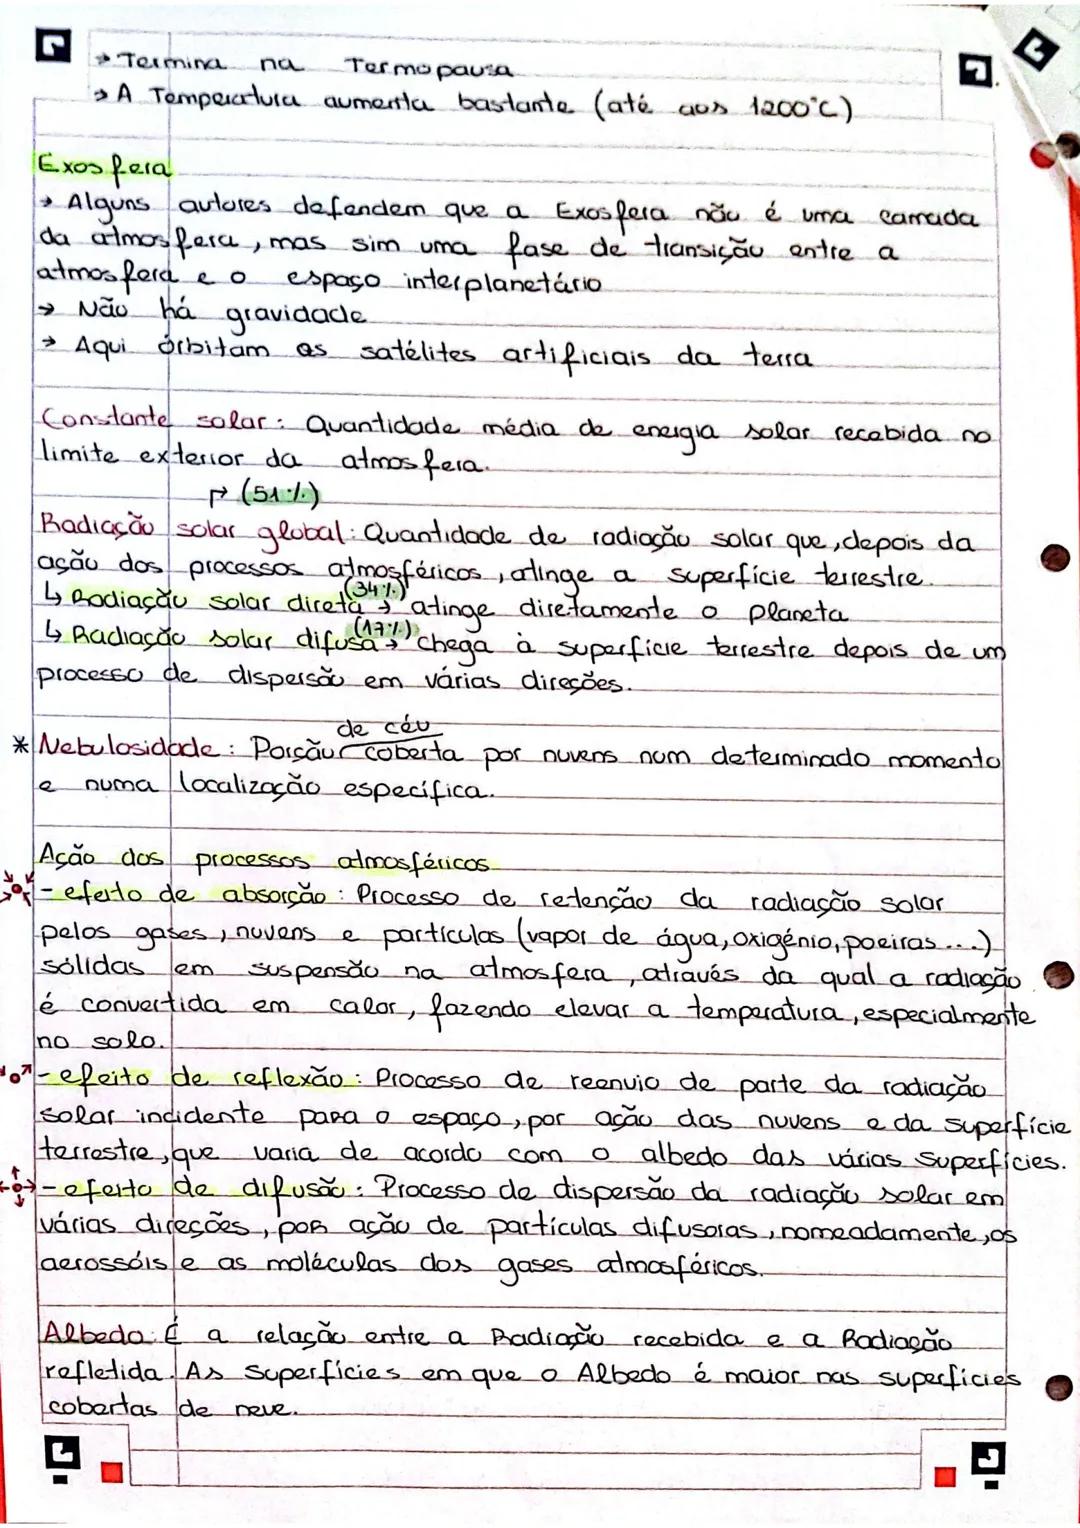 → Termina na Termopausa
→ A Temperatura aumenta bastante (até aos 1200°C)
Exosfera
→ Alguns autores defendem que a Exosfera não é uma camada
da atmosfera, mas sim uma fase de transição entre a
atmosfera e o espaço interplanetário
→ Não há gravidade
→ Aqui órbitam os satélites artificiais da terra
Constante solar: Quantidade média de energia solar recebida no
limite exterior da atmosfera.
↱ (51%)
Radiação solar global: Quantidade de radiação solar que, depois da
ação dos processos atmosféricos, atinge a superfície terrestre.
(34%)
↳ Radiação solar direta → atinge diretamente o planeta
(17%)
↳ Radiação solar difusa → chega à superfície terrestre depois de um
processo de dispersão em várias direções.
de céu
* Nebulosidade: Porção coberta por nuvens num determinado momento
e numa localização específica.
Ação dos processos atmosféricos
- efeito de absorção: Processo de retenção da radiação solar
pelos gases, nuvens e partículas (vapor de água, oxigénio, poeiras...)
sólidas em suspensão na atmosfera, através da qual a radiação
é convertida em calor, fazendo elevar a temperatura, especialmente
no solo.
- efeito de reflexão: Processo de reenvio de parte da radiação
solar incidente para o espaço, por ação das nuvens e da superfície
terrestre, que varia de acordo com o albedo das várias superfícies.
- efeito de difusão: Processo de dispersão da radiação solar em
várias direções, por ação de partículas difusoras, nomeadamente, os
aerossóis e as moléculas dos gases atmosféricos.
Albedo: É a relação entre a Radiação recebida e a Radiação
refletida. As superfícies em que o Albedo é maior nas superfícies
cobertas de neve.